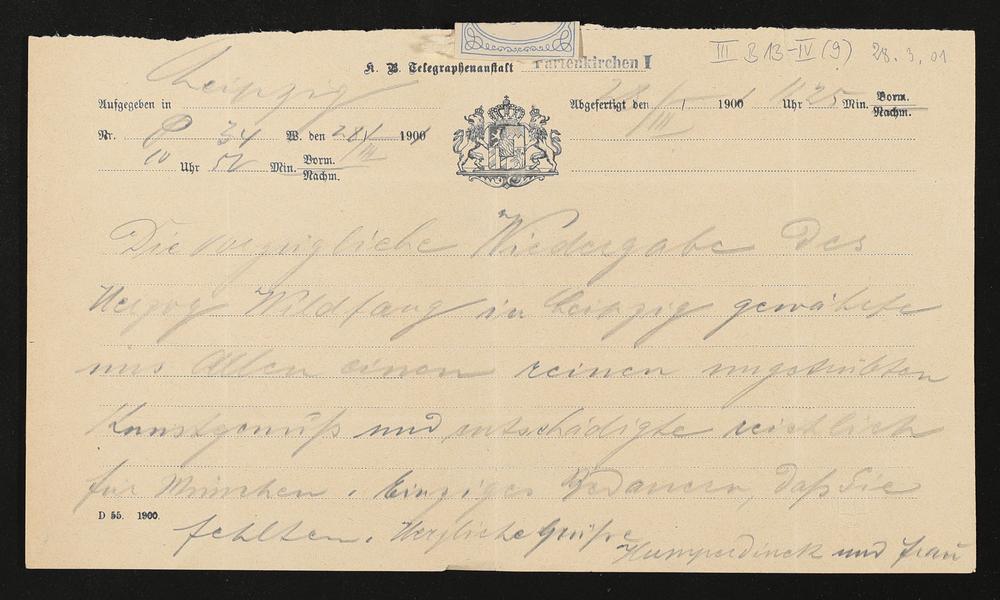 III B 13-IV (9) 28.3.01
K. B. Telegraphenanstalt Partenkirchen I
Aufgegeben in Leipzig
Abgefertigt den 28/III 1901 11 Uhr 25 Min. Vorm. Nachm.
Nr. P 34 W. den 28/III 1900
10 Uhr 50 Min. Vorm. Nachm.
Die vorzügliche Wiedergabe des
Herzog Wildfang in Leipzig gewährte
uns Allen einen reinen ungetrübten
Kunstgenuß und entschädigte reichlich
für München. Einziges Bedauern, daß Sie
fehlten. Herzliche Grüße
Humperdinck und Frau
D 55. 1900.